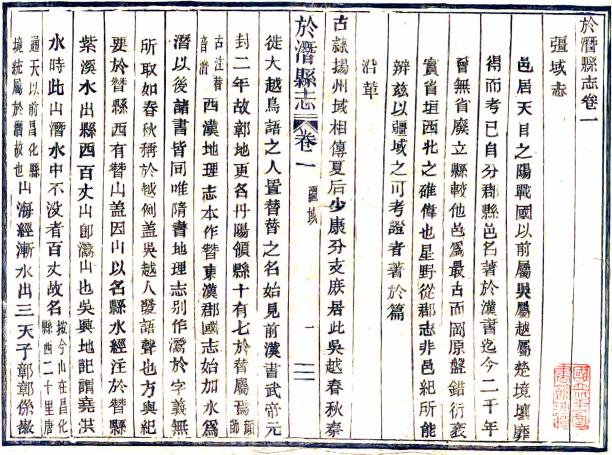 於潛縣志卷一
疆域志
邑居天目之陽戰國以前屬吳屬越屬楚境壤靡
得而考已自分郡縣邑名著於漢書迄今二千年
曾無省廢立縣較他邑爲最古而岡原盤錯衍袤
實省垣西北之雄傳也星野從郡志非邑紀所能
辨茲以疆域之可考證者著於篇
沿革
古隸揚州域相傳夏后少康分支庶居此吳越春秋秦
徙大越鳥語之人置朁朁之名始見前漢書武帝元
於潛縣志
卷一
疆域
一
封二年故鄣地更名丹陽領縣十有七於朁屬焉顏師
古注朁音潛
西漢地理志本作朁東漢郡國志始加水爲
潛以後諸書皆同唯隋書地理志別作灊於字義無
所取如春秋稱於越例蓋吳越人發語聲也方輿紀
要於朁縣西有朁山蓋因山以名縣水經注於朁縣
紫溪水出縣西百丈山卽灊山也吳興地記謂堯洪
水時此山潛水中不沒者百丈故名
按今山在昌化縣西二十里唐
通天以前昌化縣境統屬於潛故也
山海經漸水出三天子鄣鄣係徽